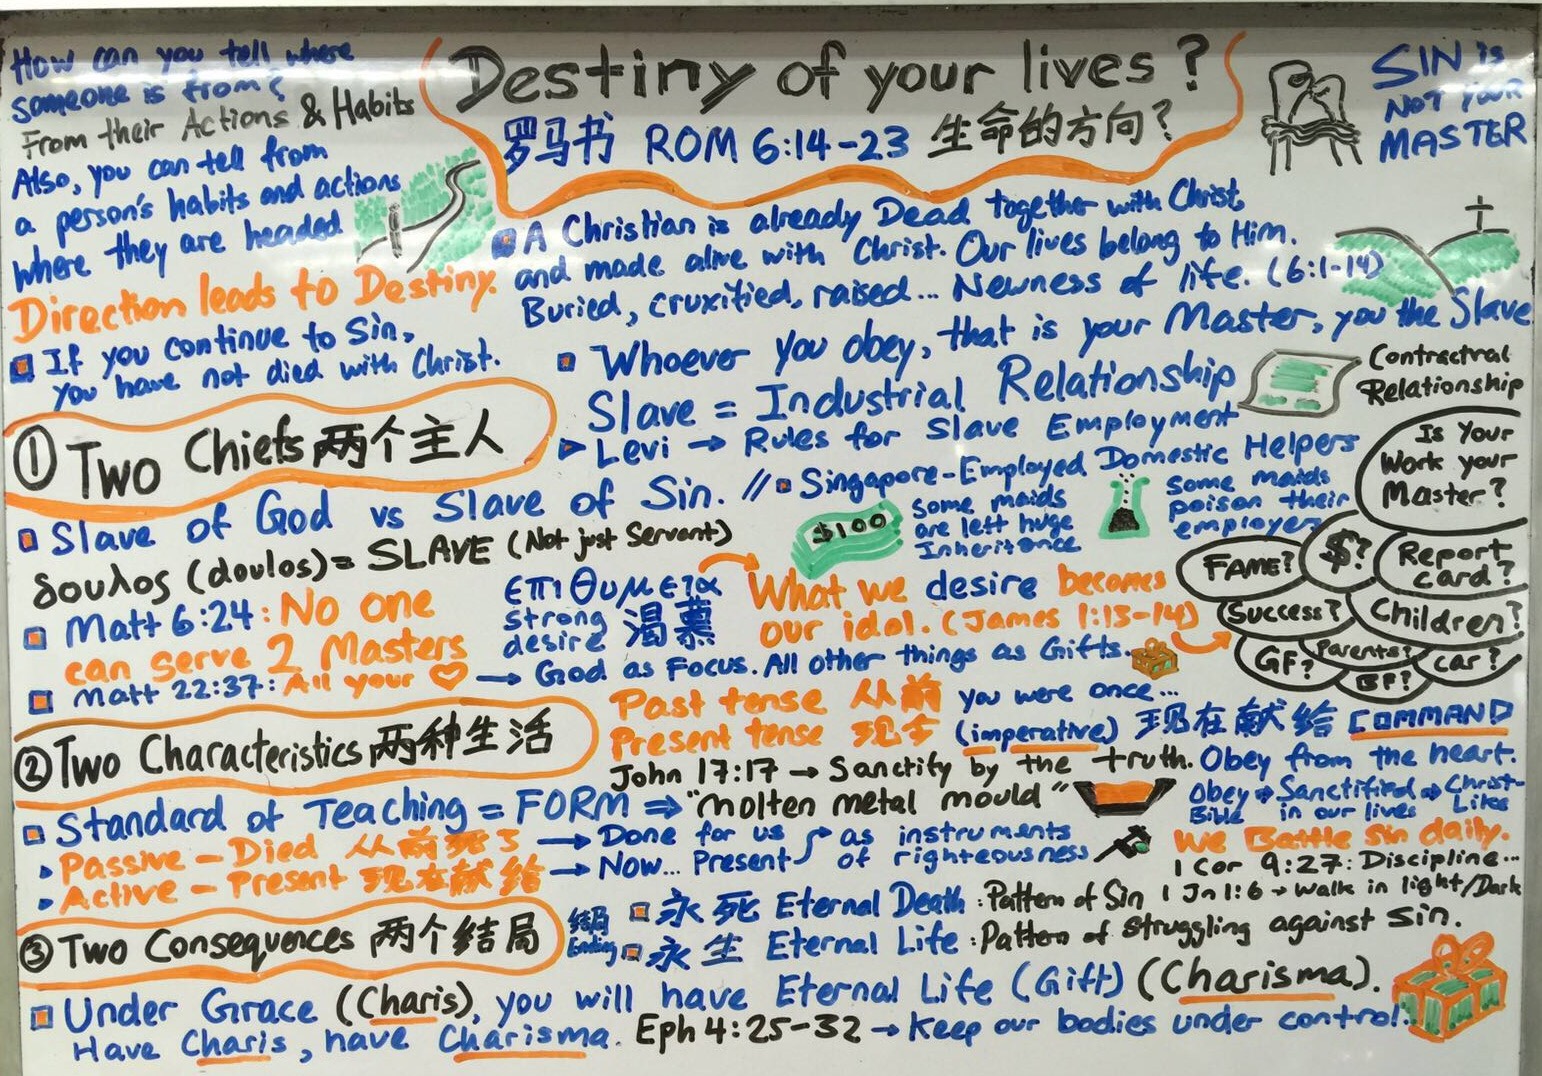 How can you tell where
someone is from?
From their Actions & Habits
Also, you can tell from
a person's habits and actions
where they are headed
Direction leads to Destiny.
If you continue to Sin,
you have not died with Christ.
Destiny of your lives?
罗马书 ROM 6:14-23 生命的方向?
SIN is
NOT YOUR
MASTER
A Christian is already Dead together with Christ
and made alive with Christ. Our lives belong to Him.
Buried, cruxified, raised... Newness of life. (6:1-14)
Whoever you obey, that is your Master, you the Slave
Slave = Industrial Relationship
Contractral
Relationship
Levi → Rules for Slave Employment
① Two Chiefs 两个主人
Slave of God vs Slave of Sin. //
Singapore-Employed Domestic Helpers
$100
some maids
are left huge
Inheritance
some maids
poison their
employer
δουλος (doulos) = SLAVE (Not just Servant)
Matt 6:24: No one
can serve 2 Masters
Matt 22:37: All your ♡ → God as Focus. All other things as Gifts.
επιθυμεια
strong
desire 渴慕
What we desire becomes
our idol. (James 1:13-14)
Is Your
Work your
Master?
FAME?
$?
Report
card?
Success?
Children?
GF?
Parents?
BF?
car?
② Two Characteristics 两种生活
Past tense 从前 you were once...
Present tense 现在 (imperative) 现在献给 COMMAND
John 17:17 → Sanctify by the truth. Obey from the heart.
Standard of Teaching = FORM ⇒ "molten metal mould"
Obey → Sanctified → Christ-
Bible in our lives Like
Passive - Died 从前死了 → Done for us
Active - Present 现在献给 → Now... Present
as instruments
of righteousness
We Battle Sin daily.
1 Cor 9:27: Discipline...
1 Jn 1:6 → walk in light/Dark
③ Two Consequences 两个结局
结局
Ending
永死 Eternal Death: Pattern of Sin
永生 Eternal Life: Pattern of struggling against Sin.
Under Grace (Charis), you will have Eternal Life (Gift) (Charisma).
Have Charis, have Charisma. Eph 4:25-32 → Keep our bodies under control.